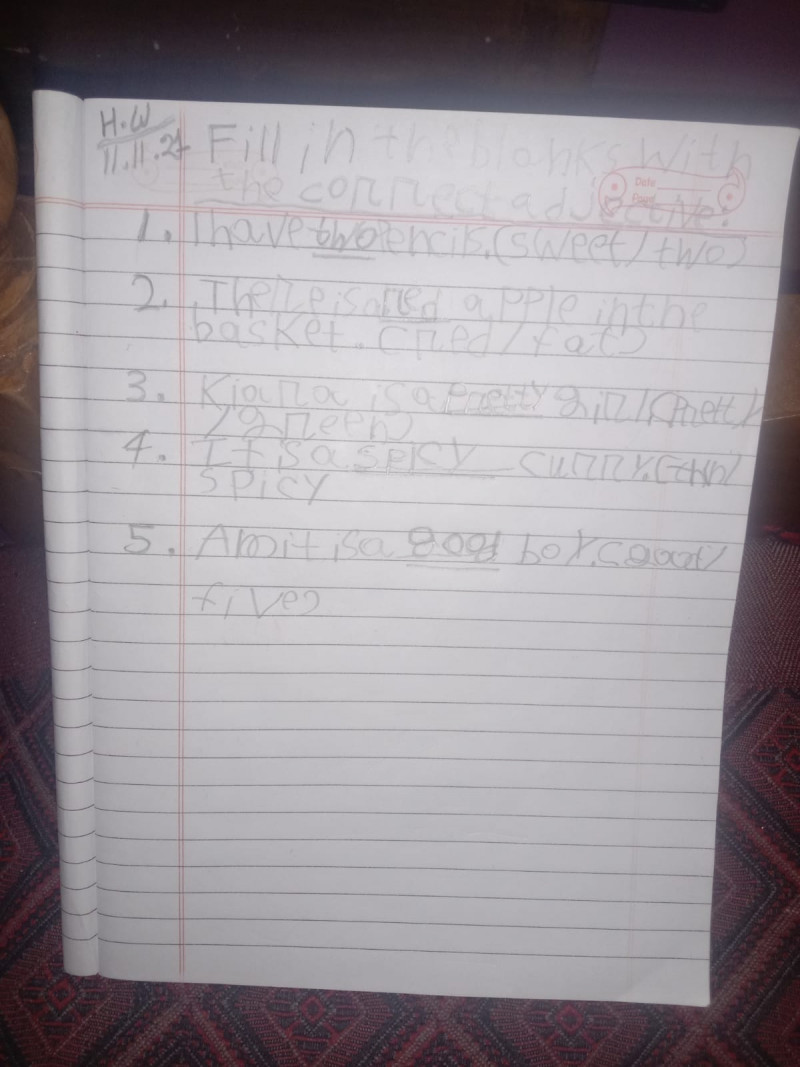 H.W
11.11.21 Fill in the blanks with
the correct adjective:
Date
Page
1. I have two pencils.(sweet/two)
2. There is a red apple in the
basket. (red/fat)
3. Kiara is a pretty girl.(Pretty
/green)
4. It is a spicy curry.(
spicy
5. Amit is a good boy.(good/
five)